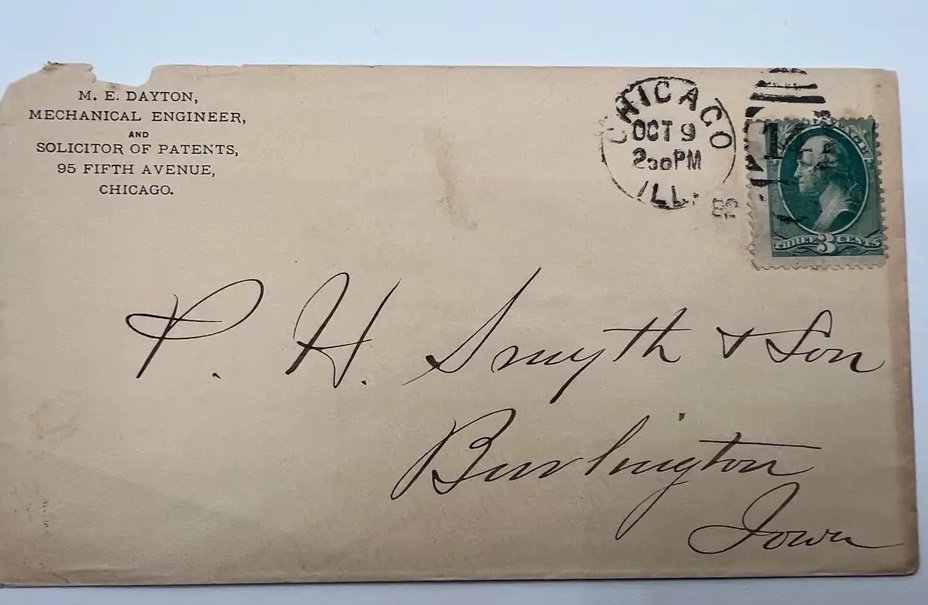 M. E. DAYTON,
MECHANICAL ENGINEER,
AND
SOLICITOR OF PATENTS,
95 FIFTH AVENUE,
CHICAGO.
CHICAGO
OCT 9
230PM
ILL.
82
1
THREE 3 CENTS
P. H. Smyth & Son
Burlington
Iowa